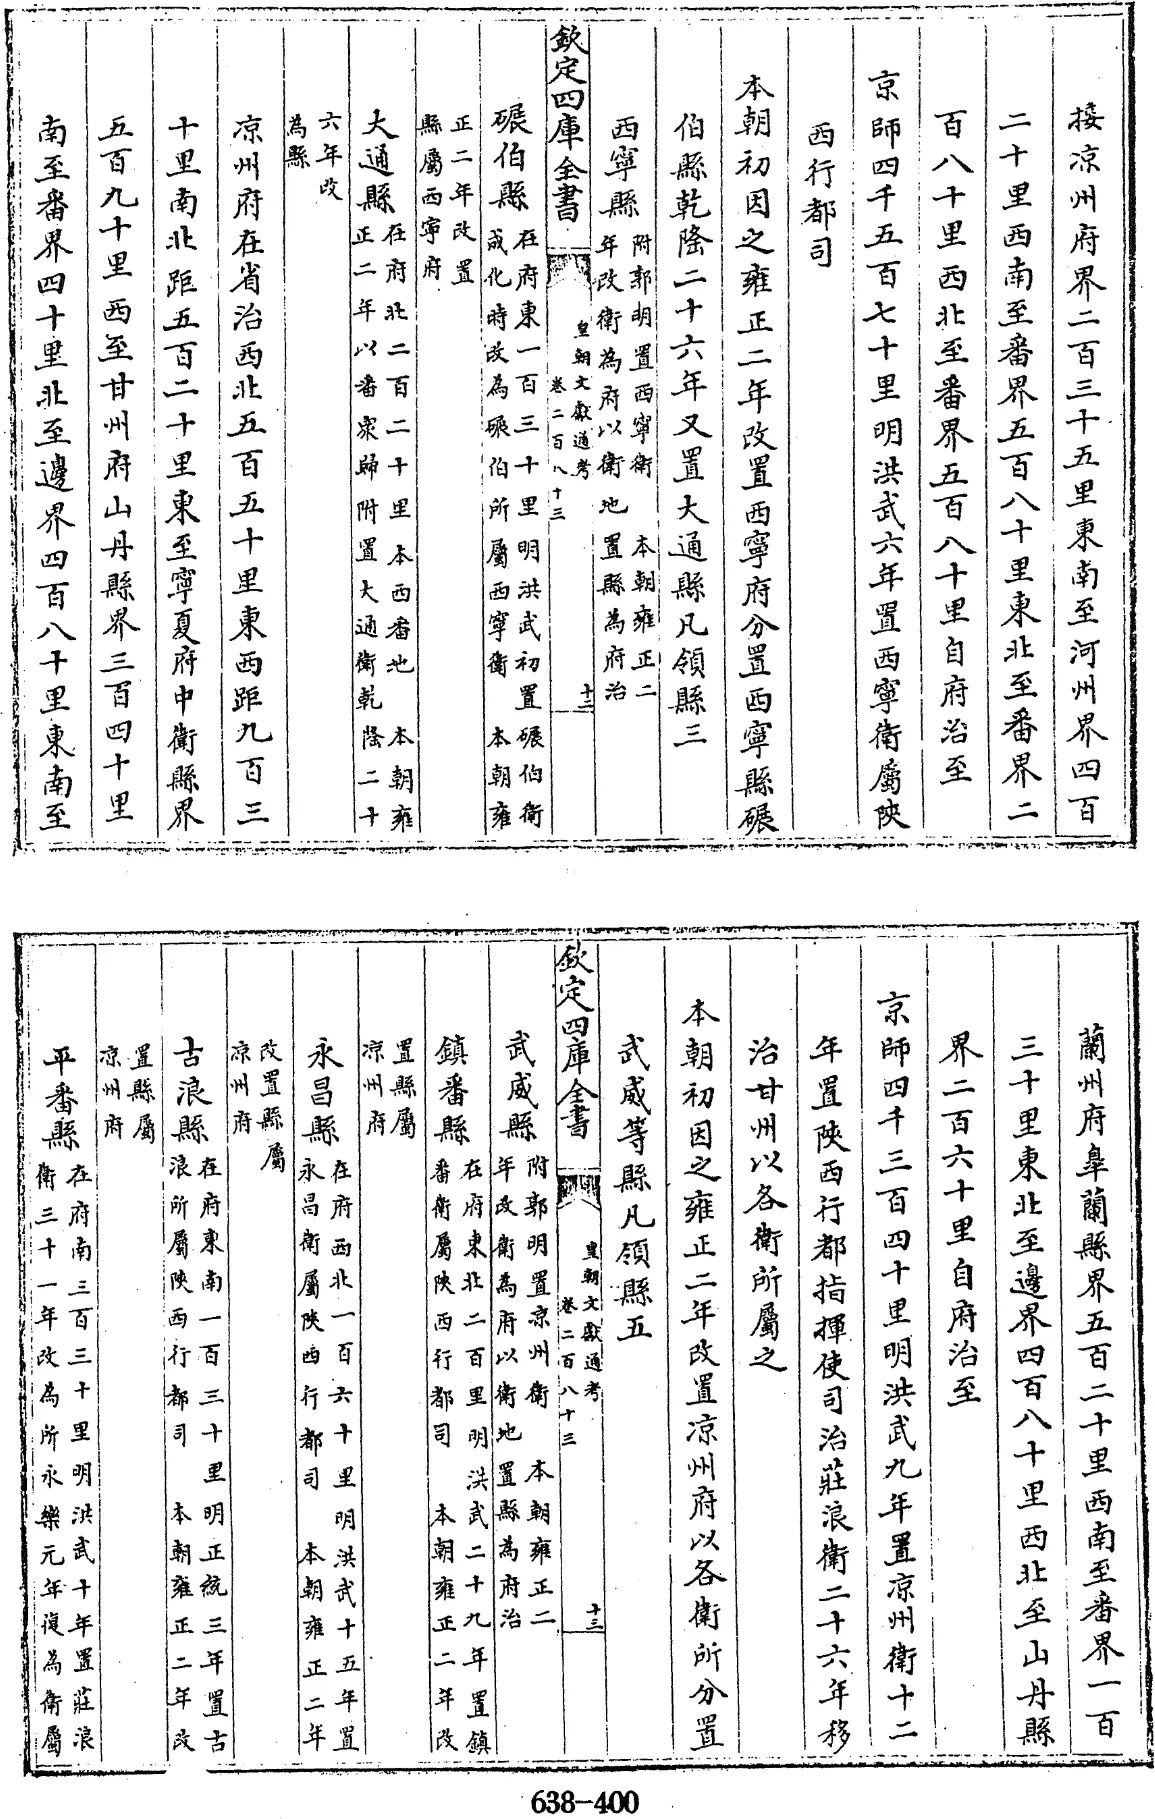 接凉州府界二百三十五里東南至河州界四百
二十里西南至番界五百八十里東北至番界二
百八十里西北至番界五百八十里自府治至
京師四千五百七十里明洪武六年置西寧衛屬陜
西行都司
本朝初因之雍正二年改置西寧府分置西寧縣碾
伯縣乾隆二十六年又置大通縣凡領縣三
西寧縣
附郭明置西寧衛 本朝雍正二
年改衛為府以衛地置縣為府治
欽定四庫全書
皇朝文獻通考
卷二百八十三
十三
碾伯縣
在府東一百三十里明洪武初置碾伯衛
成化時改為碾伯所屬西寧衛 本朝雍
正二年改置
縣屬西寧府
大通縣
在府北二百二十里本西番地 本朝雍
正二年以番衆歸附置大通衛乾隆二十
六年改
為縣
凉州府在省治西北五百五十里東西距九百三
十里南北距五百二十里東至寧夏府中衛縣界
五百九十里西至甘州府山丹縣界三百四十里
南至番界四十里北至邊界四百八十里東南至
蘭州府臯蘭縣界五百二十里西南至番界一百
三十里東北至邊界四百八十里西北至山丹縣
界二百六十里自府治至
京師四千三百四十里明洪武九年置凉州衛十二
年置陜西行都指揮使司治莊浪衛二十六年移
治甘州以各衛所屬之
本朝初因之雍正二年改置凉州府以各衛所分置
武威等縣凡領縣五
武威縣
附郭明置凉州衛 本朝雍正二
年改衛為府以衛地置縣為府治
欽定四庫全書
皇朝文獻通考
卷二百八十三
十三
鎮番縣
在府東北二百里明洪武二十九年置鎮
番衛屬陜西行都司 本朝雍正二年改
置縣屬
凉州府
永昌縣
在府西北一百六十里明洪武十五年置
永昌衛屬陜西行都司 本朝雍正二年
改置縣屬
凉州府
古浪縣
在府東南一百三十里明正統三年置古
浪所屬陜西行都司 本朝雍正二年改
置縣屬
凉州府
平番縣
在府南三百三十里明洪武十年置莊浪
衛三十一年改為所永樂元年復為衛屬
638-400